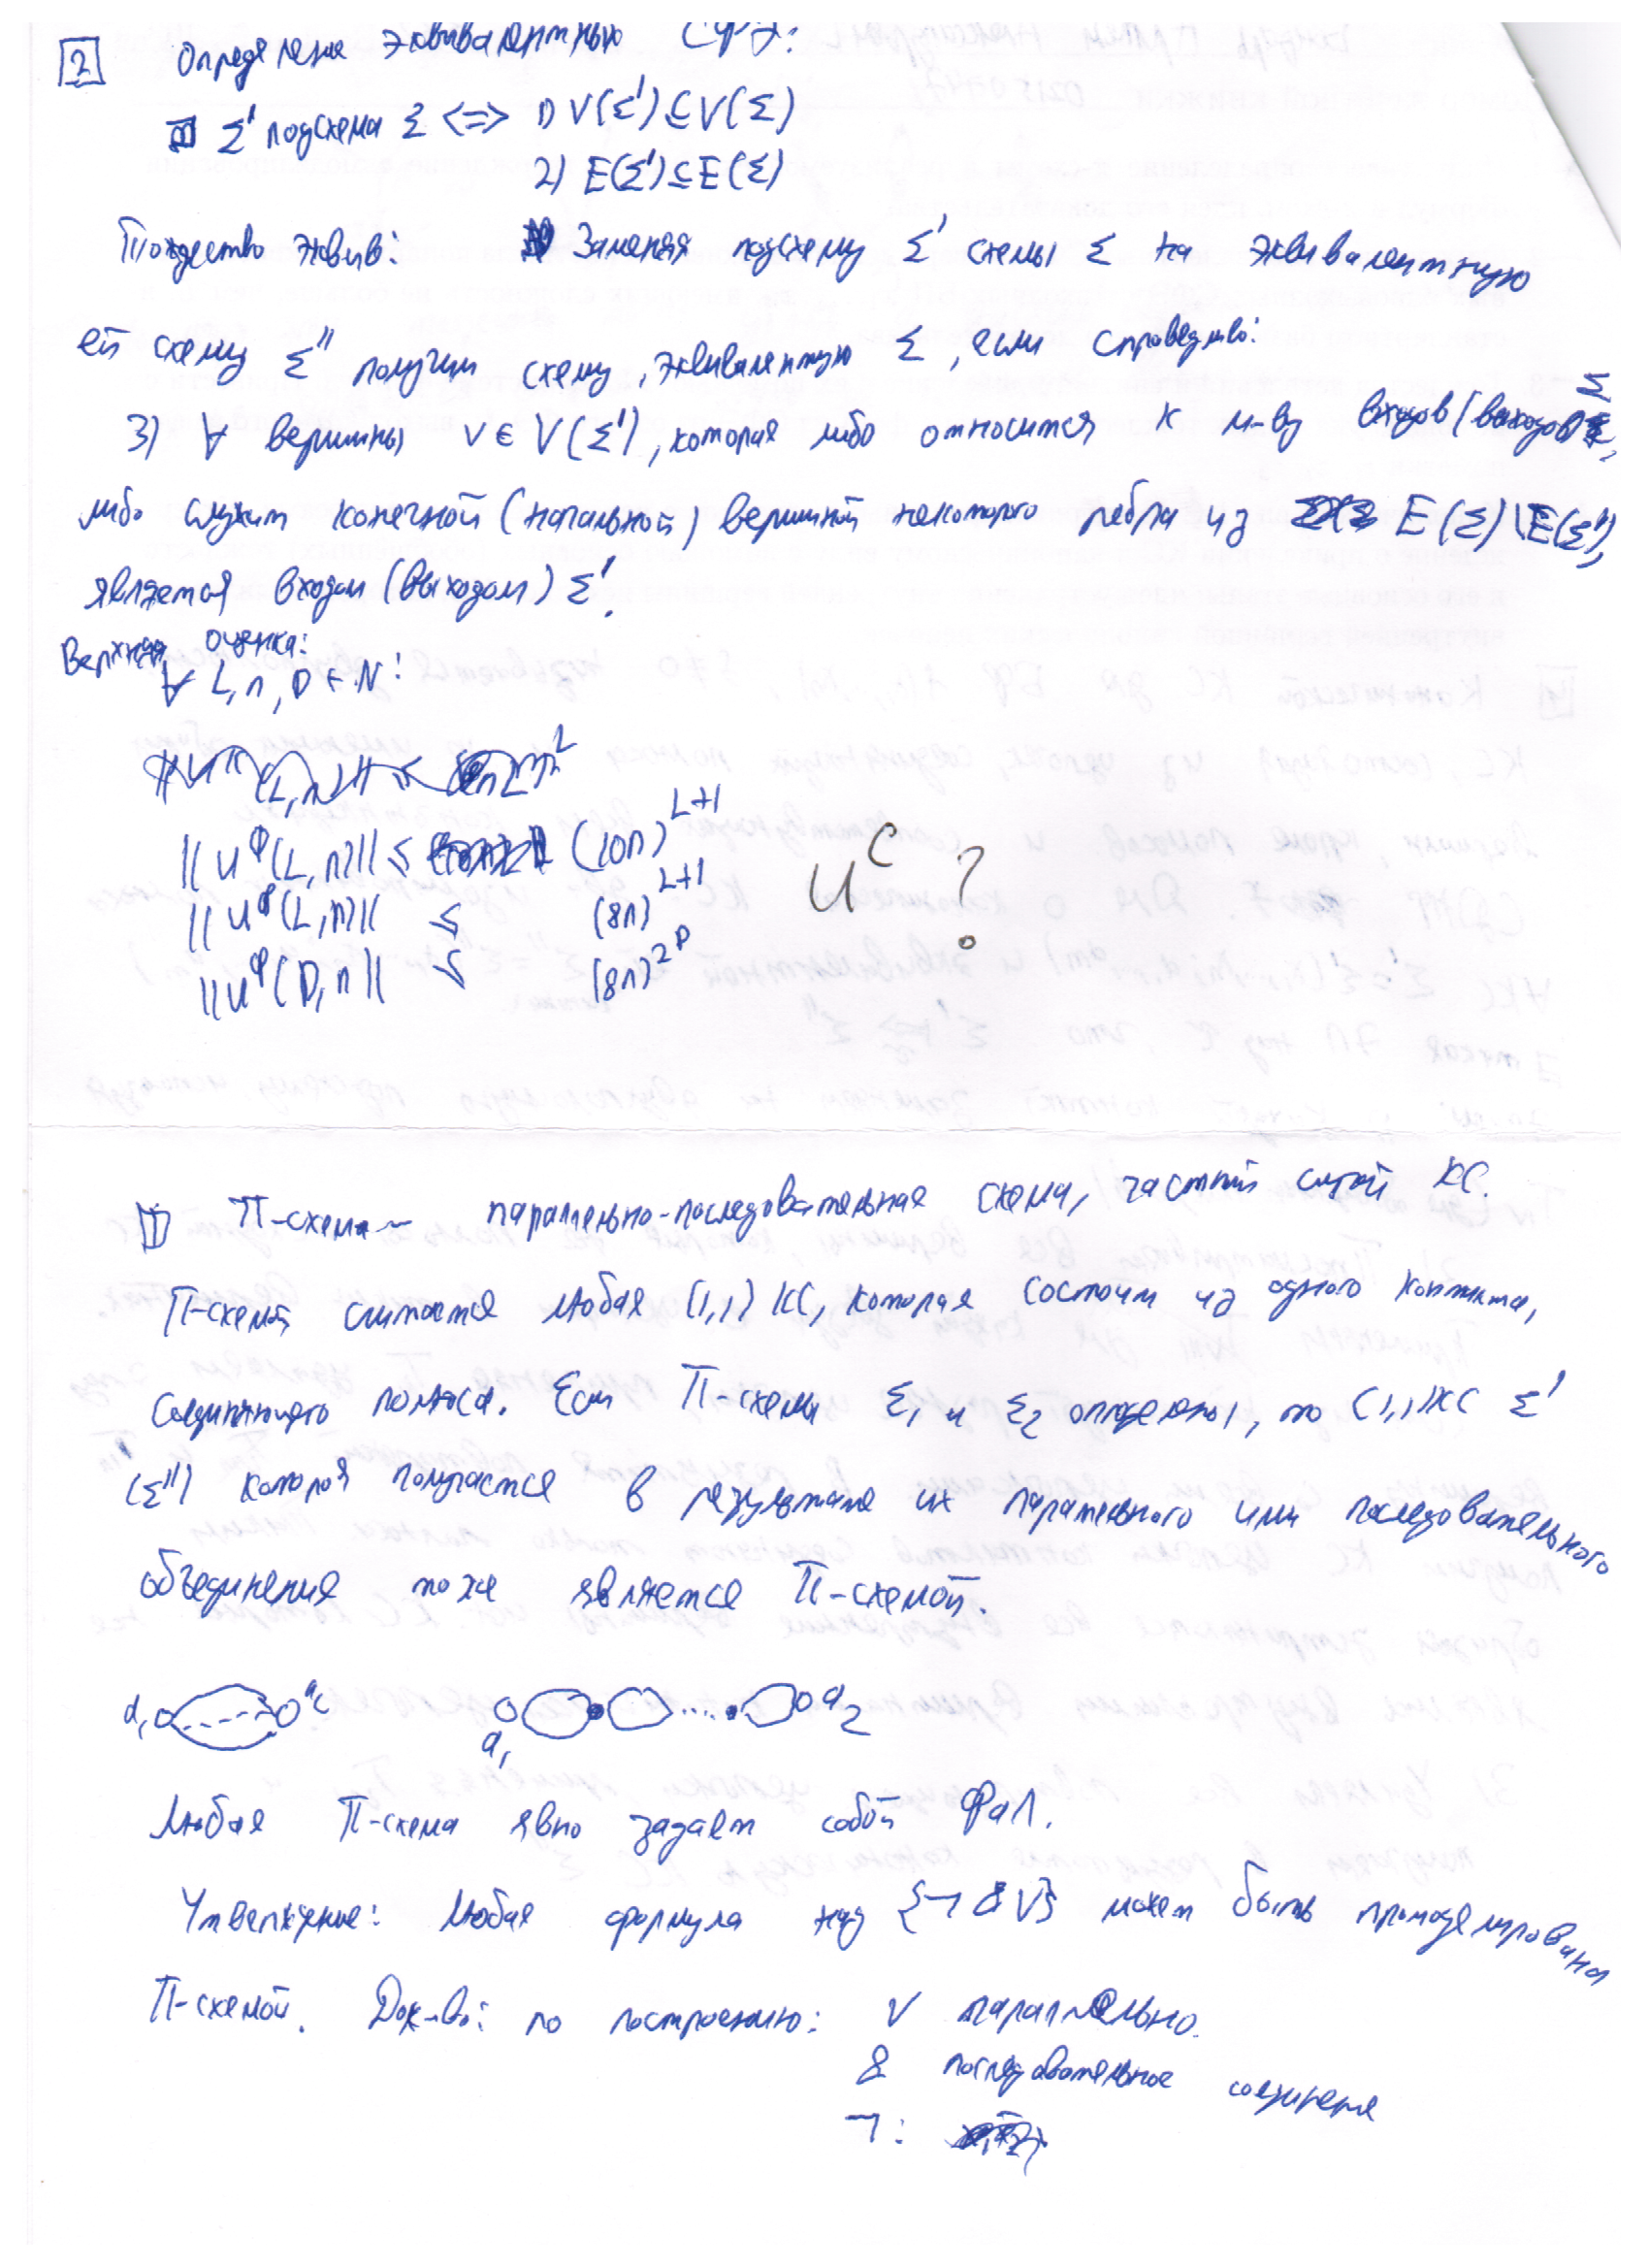 2 Определение эквивалентных СФЭ:
Σ' подсхема Σ <=> 1) V(Σ')⊆V(Σ)
2) E(Σ')⊆E(Σ)
Тождество эквив: Заменяя подсхему Σ' схемы Σ на эквивалентную
ей схему Σ'' получим схему, эквивалентную Σ, если справедливо:
3) ∀ вершины v∈V(Σ'), которая либо относится к м-ву входов (выходов) Σ,
либо служит конечной (начальной) вершиной некоторого ребра из E(Σ)\E(Σ'),
является входом (выходом) Σ'.
Верхняя оценка:
∀ L, n, D ∈ N:
||U^Φ(L,n)|| ≤ (10n)^{L+1}
||U^Φ(L,n)|| ≤ (8n)^{L+1}
||U^Φ[D,n]|| ≤ (8n)^{2^D}
U^C ?
1 П-схема – параллельно-последовательная схема, частный случай КС.
П-схемой считается любая (1,1) КС, которая состоит из одного контакта,
соединяющего полюса. Если П-схемы Σ₁ и Σ₂ определены, то (1,1)КС Σ'
(Σ'') которая получается в результате их параллельного или последовательного
объединения тоже является П-схемой.
a₁ a₂
a₁ .... a₂
Любая П-схема явно задает собой ФАЛ.
Утверждение: Любая формула над {¬ & V} может быть промоделирована
П-схемой. Док-во: по построению: V параллельно.
& последовательное соединение
¬: